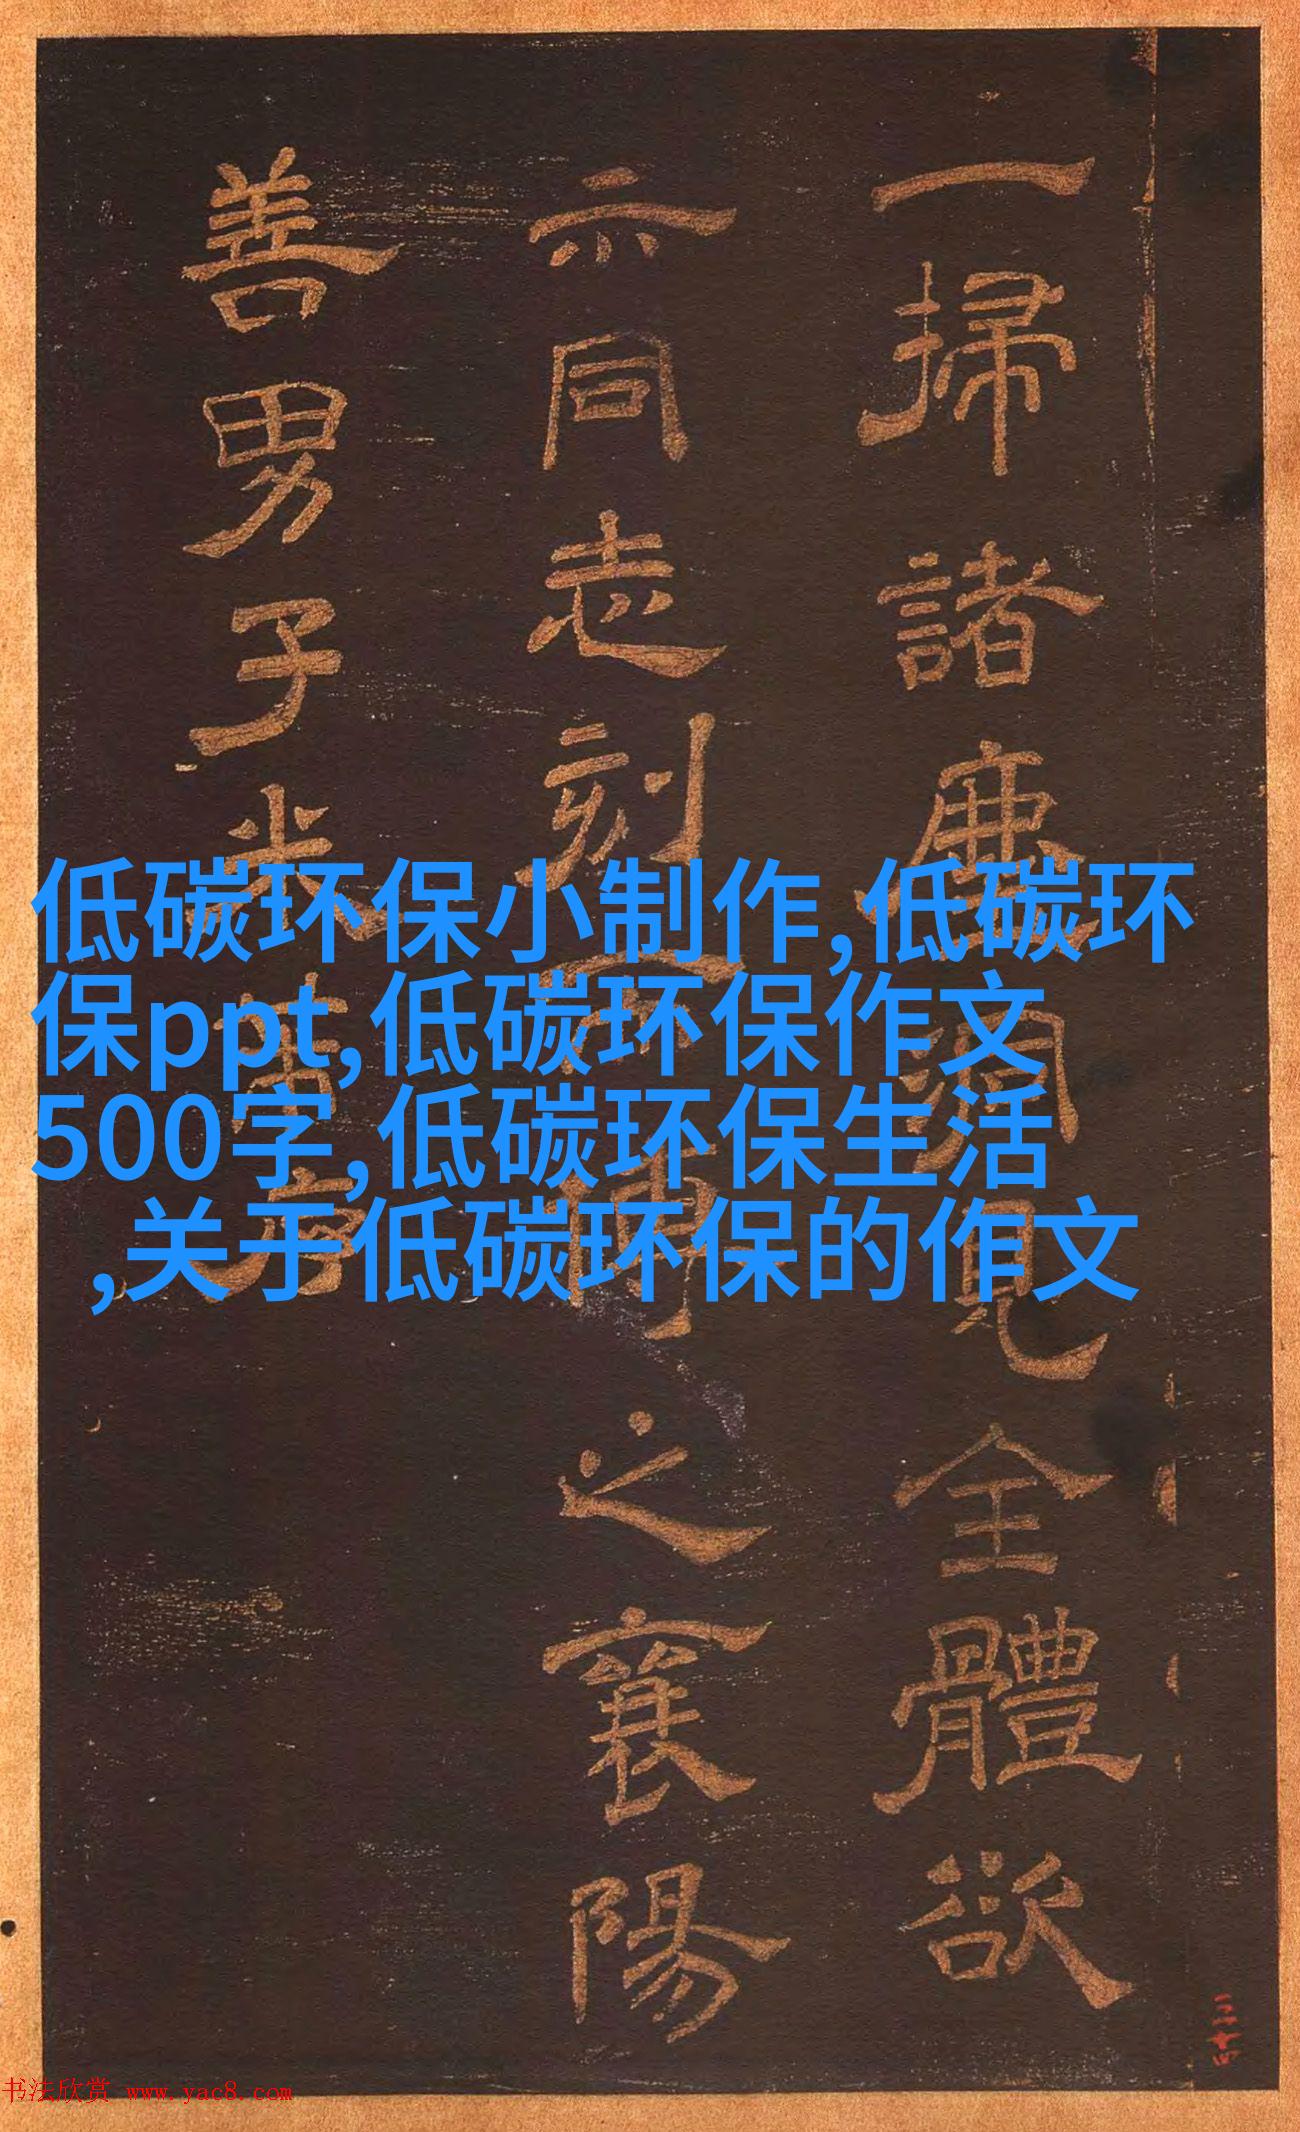 一掃諸塵洞見全體欲
示同志刻而傳之襄陽
善男子米
低碳环保小制作,低碳环
保ppt,低碳环保作文
500字,低碳环保生活
,关于低碳环保的作文
书法欣赏 www.yac8.com